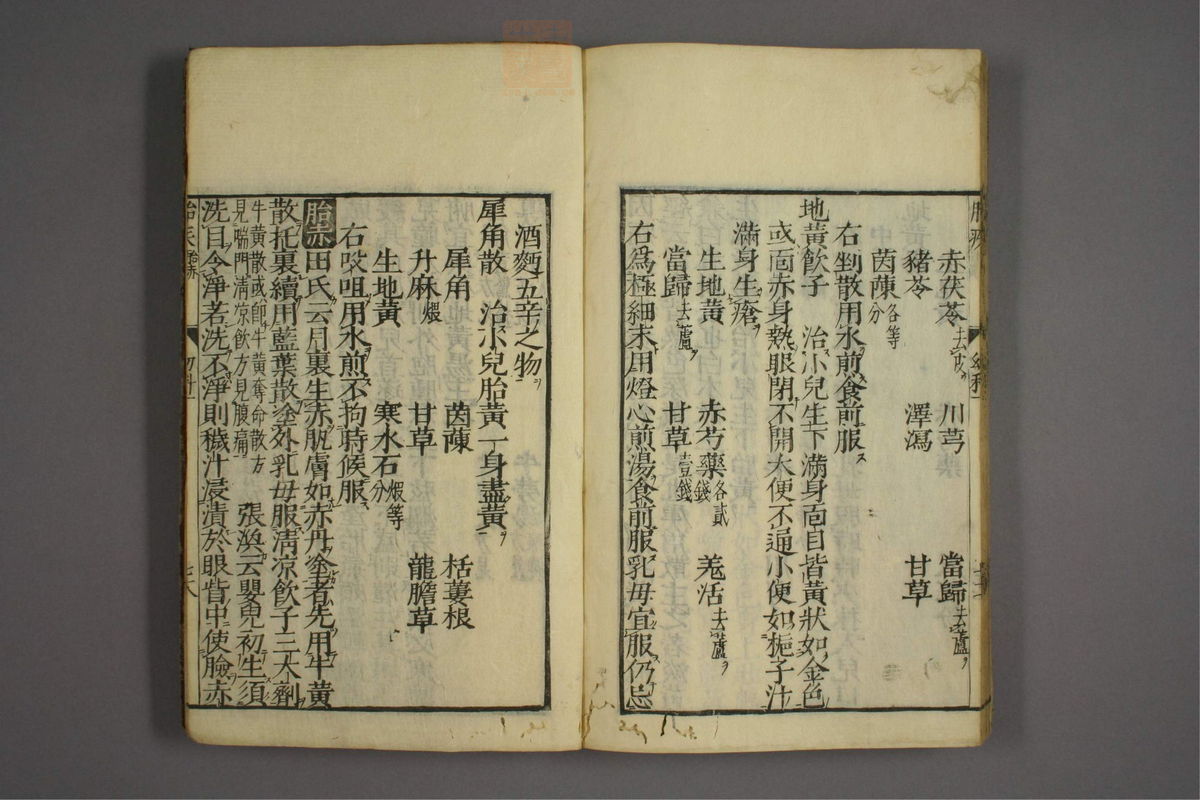 赤茯苓去皮　川芎　當歸去蘆
豬苓　澤瀉　甘草
茵蔯各等分
右剉散用水煎食前服
地黃飲子　治小兒生下滿身面目皆黃狀如金色
或面赤身熱眼閉不開大便不通小便如梔子汁
滿身生瘡
生地黃　赤芍藥各貳錢　羗活去蘆
當歸去蘆　甘草壹錢
右爲極細末用燈心煎湯食前服乳母宜服仍忌
酒麪五辛之物
犀角散　治小兒胎黃一身盡黃
犀角　茵蔯　栝蔞根
升麻煆　甘草　龍膽草
生地黃　寒水石煆等分
右㕮咀用水煎不拘時候服
胎赤田氏云月裏生赤肌膚如赤丹塗者先用牛黃
散托裏續用藍葉散塗外乳母服清凉飲子三大劑
牛黃散或師牛黃奪命散方
見喘門清凉飲方見腹痛
張渙云嬰兒初生須
洗目令淨若洗不淨則穢汁浸漬於眼眥中使臉赤